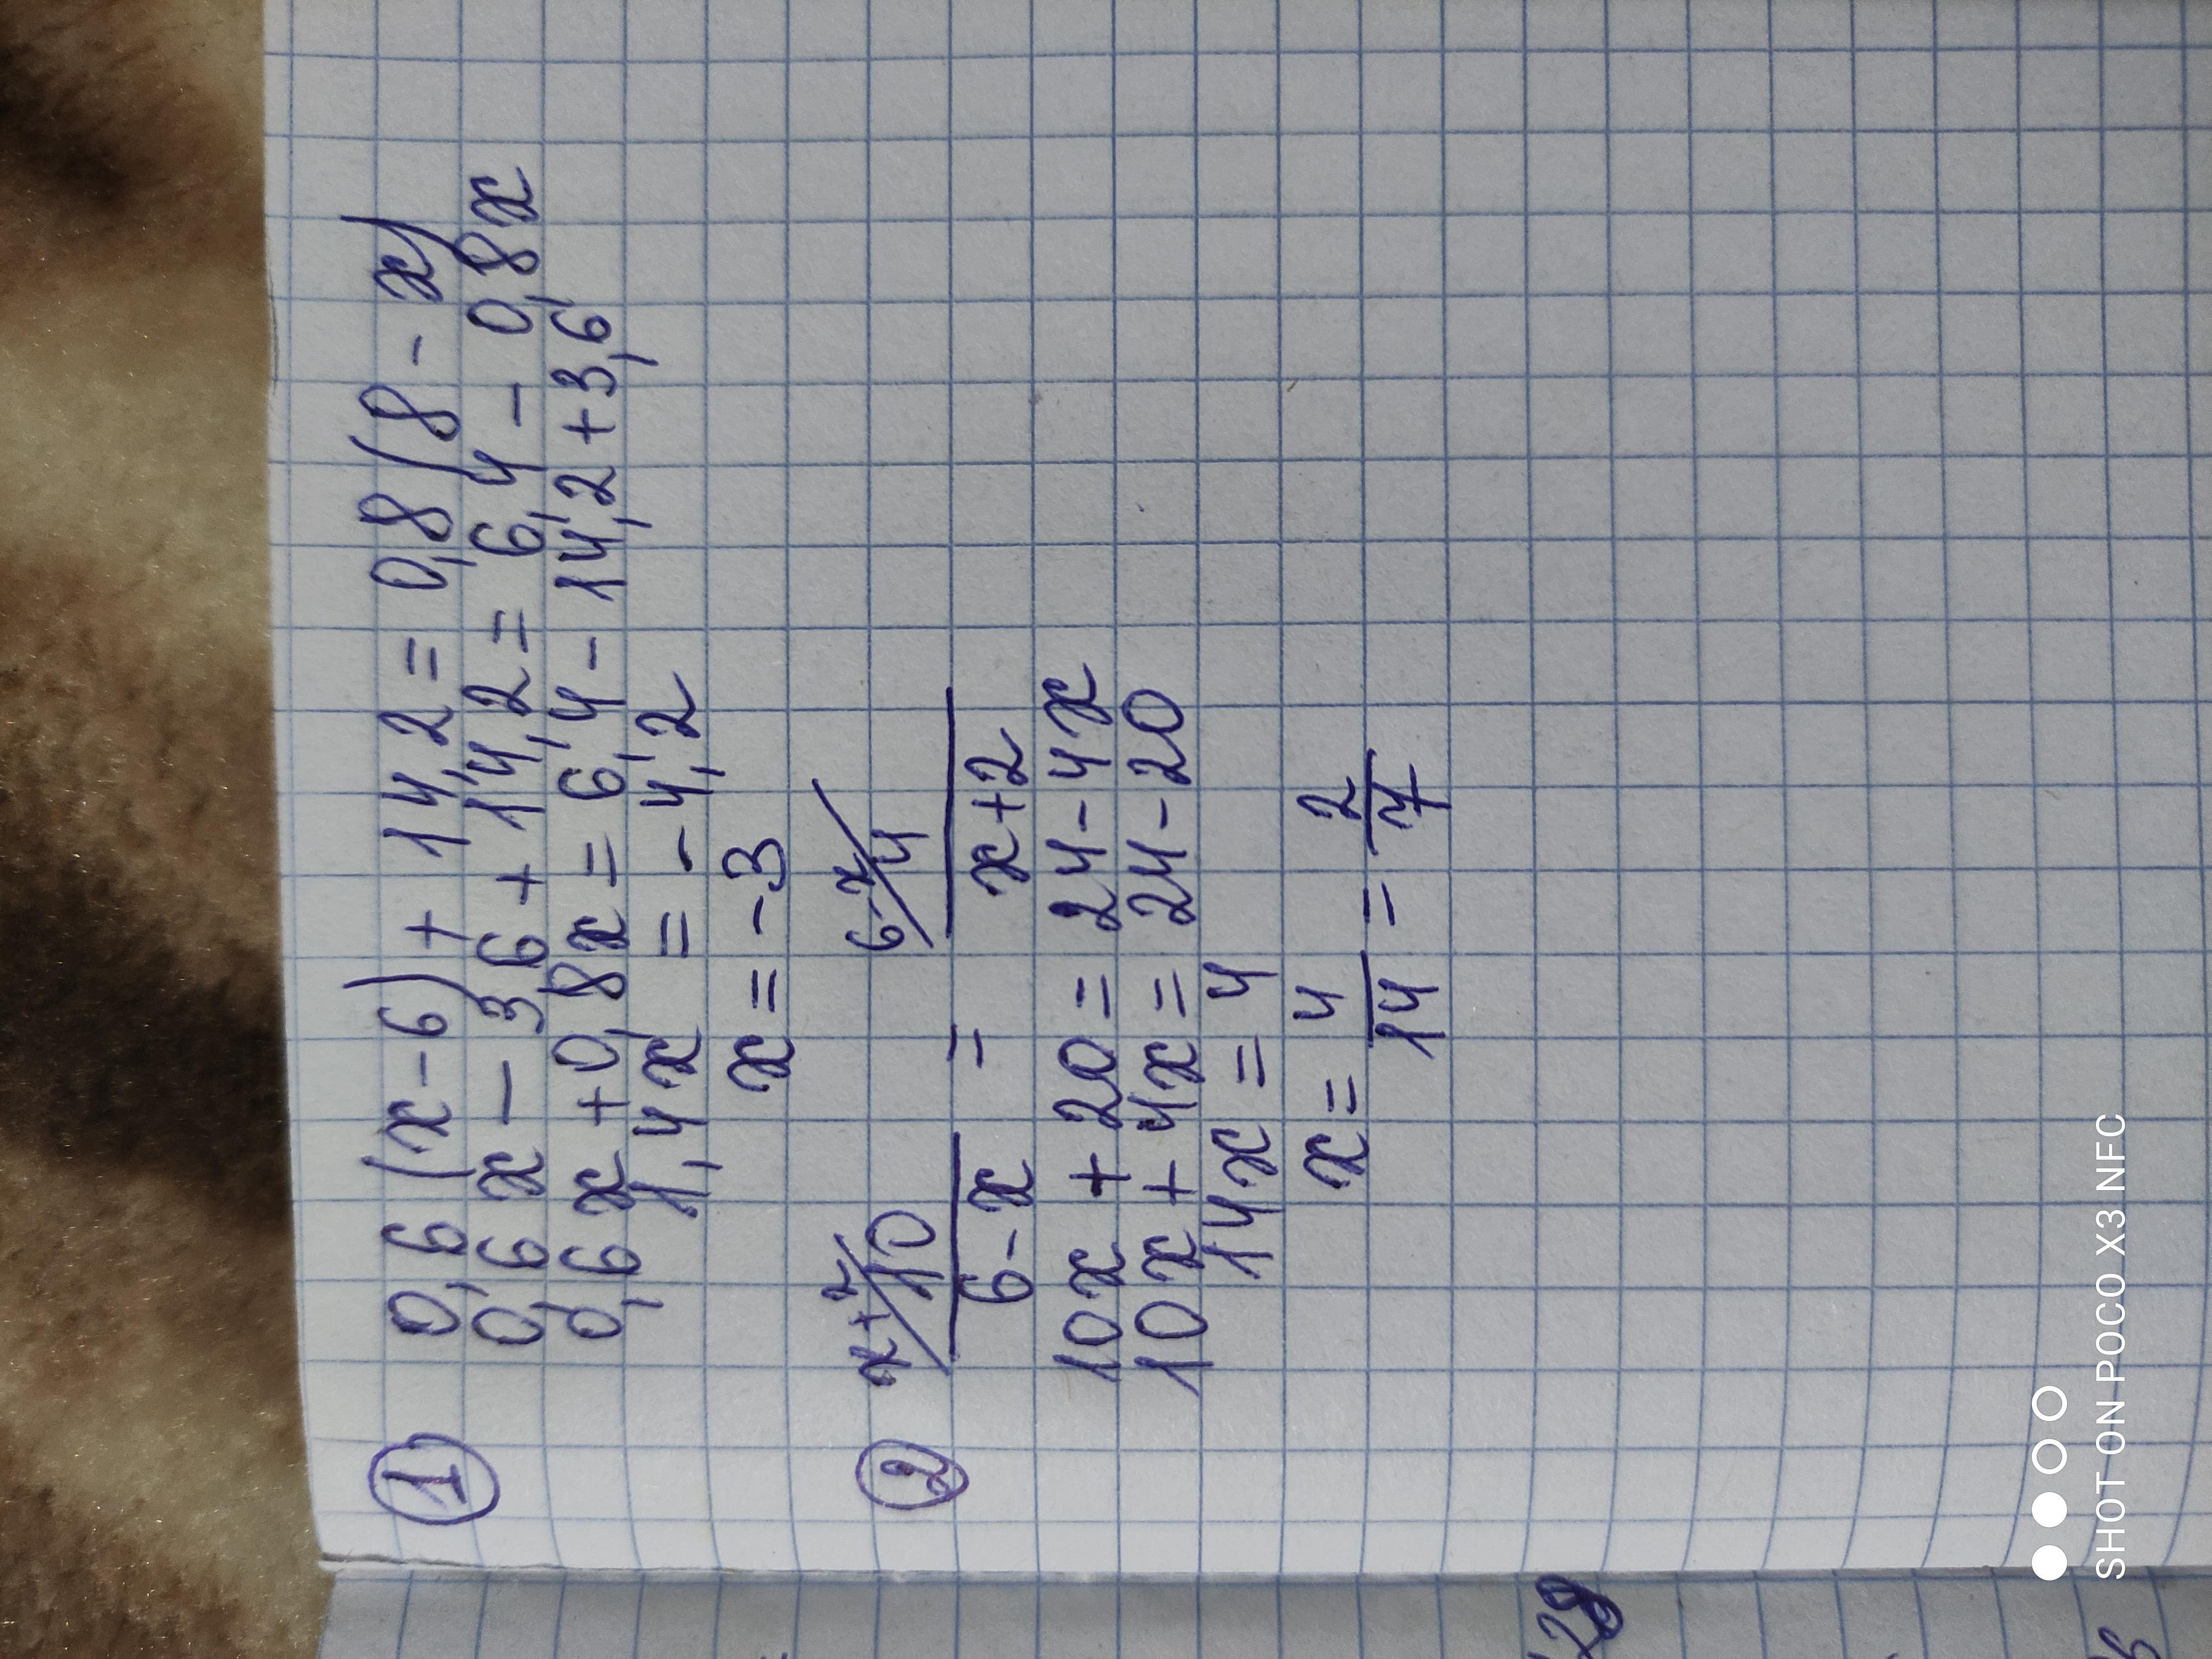 ① 0,6 (x - 6) + 14,2 = 0,8 (8 - x)
0,6 x - 3,6 + 14,2 = 6,4 - 0,8 x
0,6 x + 0,8 x = 6,4 - 14,2 + 3,6
1,4 x = - 4,2
x = - 3
② x+2/ 10 / 6 - x = 6-x/ 4 / x + 2
10 x + 20 = 24 - 4 x
10 x + 4 x = 24 - 20
14 x = 4
x = 4/14 = 2/7
28
SHOT ON POCO X3 NFC